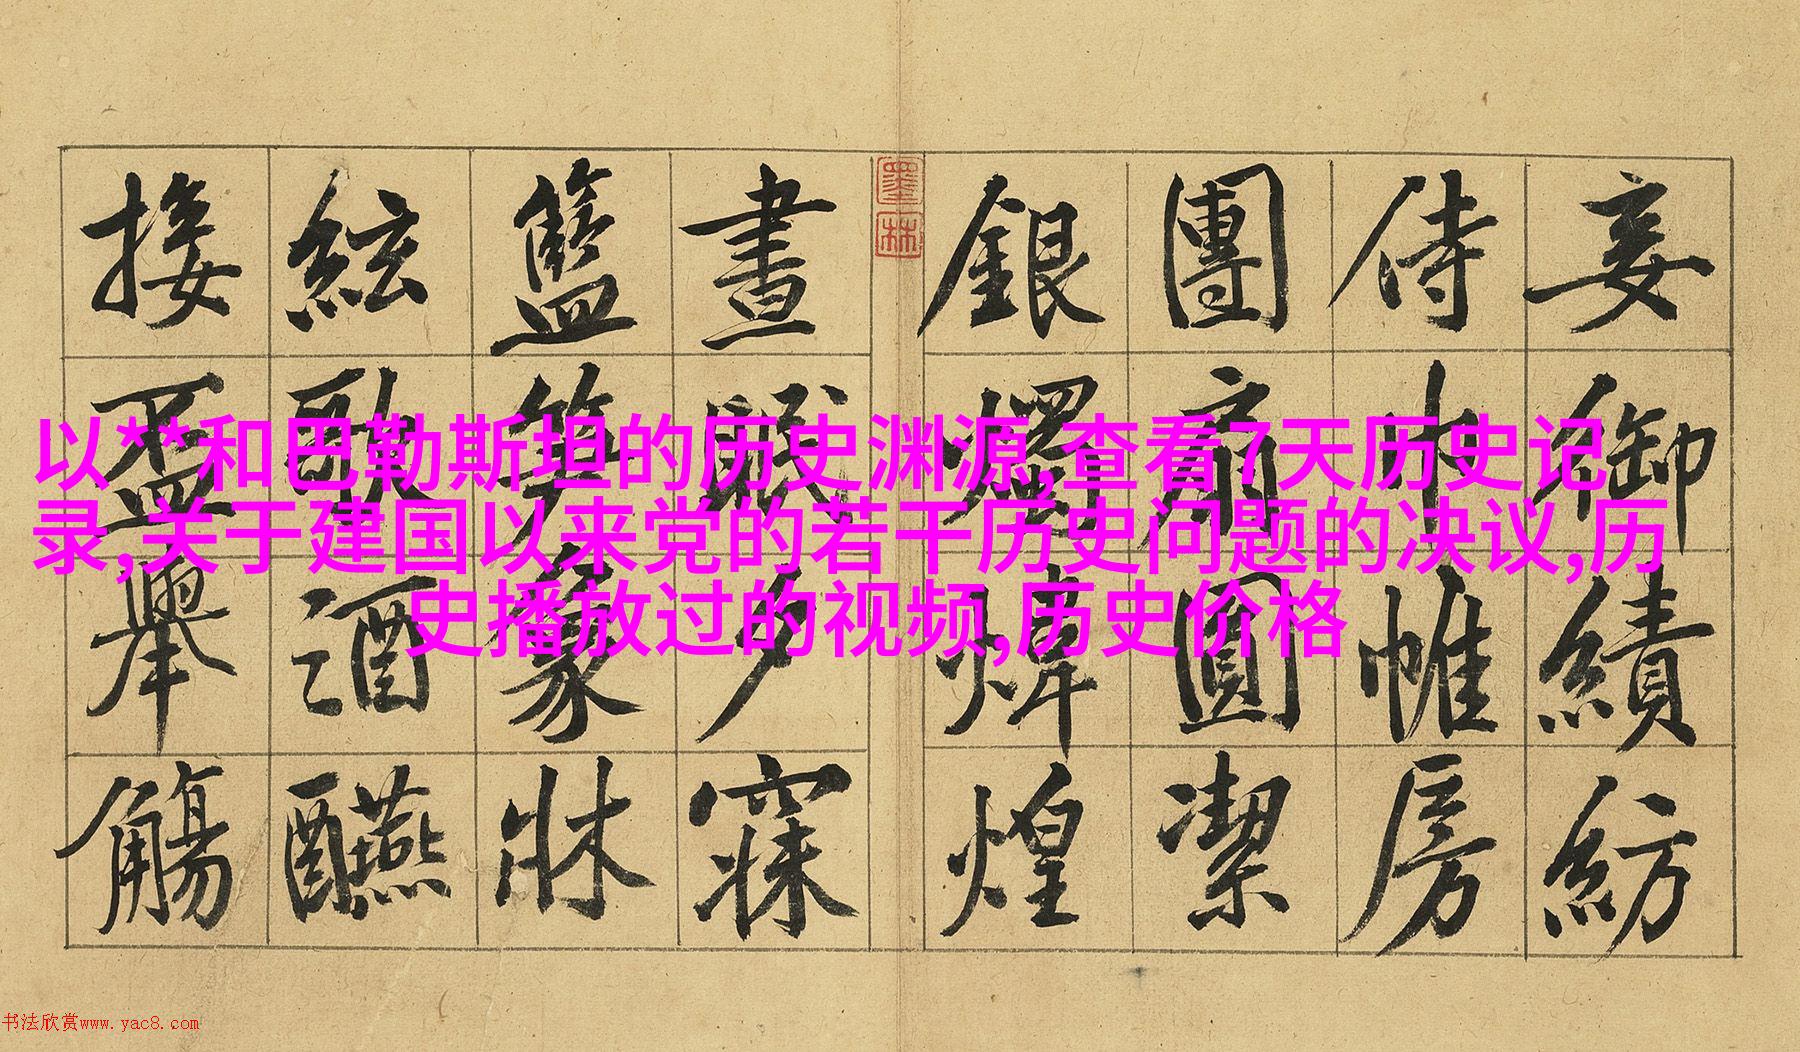 以**和巴勒斯坦的历史渊源,查看7天历史记
录,关于建国以来党的若干历史问题的决议,历
史播放过的视频,历史价格
妾御績紡
侍巾帷房
團扇圓潔
銀燭煒煌
墨林
晝眠夕寐
籃笋象牀
絃歌酒醼
接盃舉觴
书法欣赏www.yac8.com